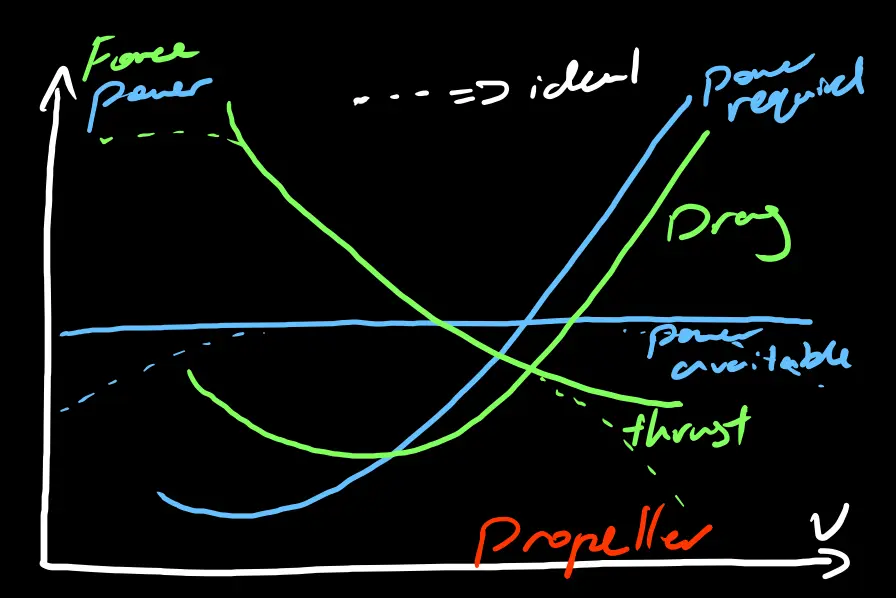 Force
power
---- => ideal
power
required
Drag
power
available
thrust
Propeller
V